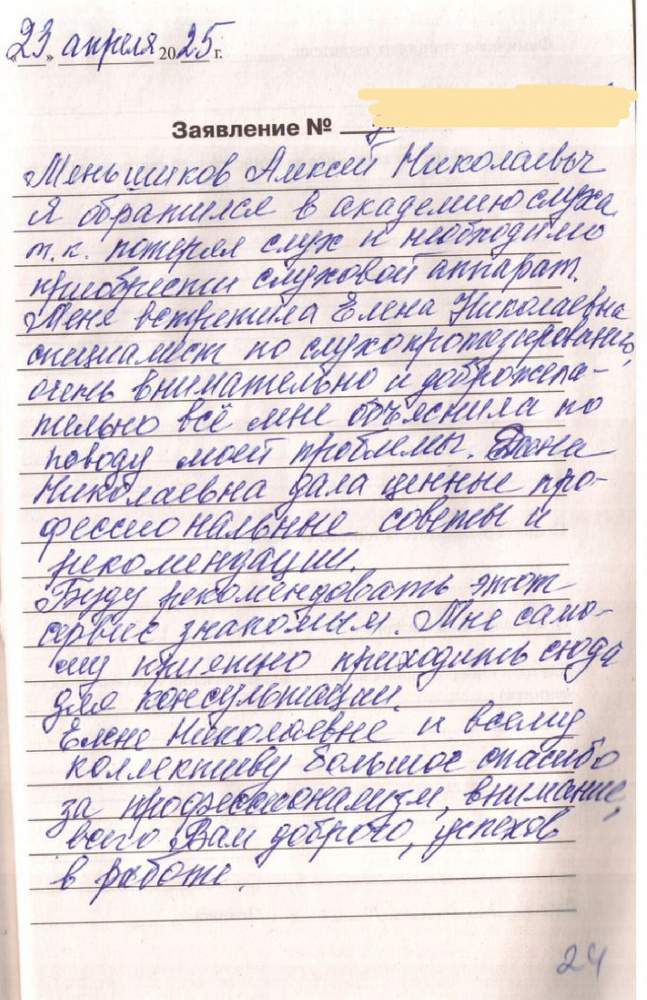 «23» апреля 2025 г.
Заявление №
Меньшиков Алексей Николаевич
Я обратился в академию слуха,
т.к. потерял слух и необходимо
приобрести слуховой аппарат.
Меня встретила Елена Николаевна
специалист по слухопротезированию,
очень внимательно и доброжела-
тельно всё мне объяснила по
поводу моей проблемы. Елена
Николаевна дала ценные про-
фессиональные советы и
рекомендации.
Буду рекомендовать этот
сервис знакомым. Мне само-
му приятно приходить сюда
для консультации.
Елене Николаевне и всему
коллективу большое спасибо
за профессионализм, внимание,
всего Вам доброго, успехов
в работе.
24